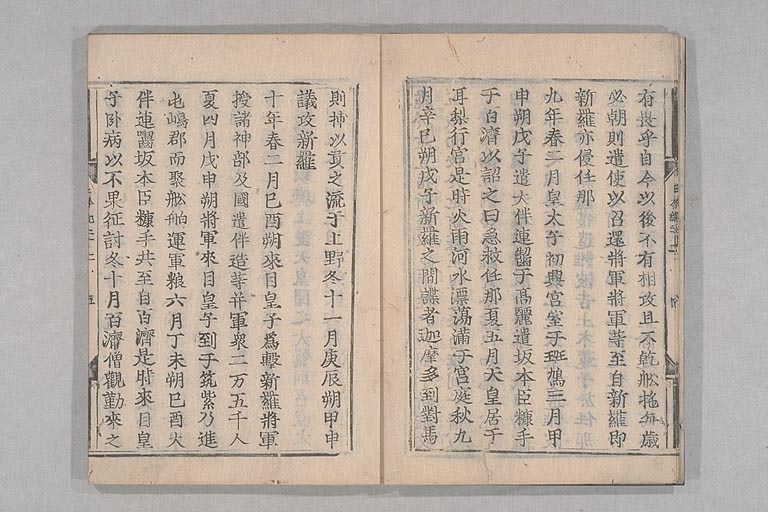 有戰乎自今以後不有相攻且不乾船柁每歲
必朝則遣使以召還將軍將軍等至自新羅即
新羅亦侵任那
九年春二月皇太子初興宮室于斑鳩三月甲
申朔戊子遣大伴連囓于高麗遣坂本臣糠手
于百濟以詔之曰急救任那夏五月天皇居于
耳梨行宮是時大雨河水漂蕩滿于宮庭秋九
月辛巳朔戊子新羅之間諜者迦摩多到對馬
則捕以貢之流于上野冬十一月庚辰朔甲申
議攻新羅
十年春二月己酉朔來目皇子爲擊新羅將軍
授諸神部及國造伴造等并軍衆二万五千人
夏四月戊申朔將軍來目皇子到于筑紫乃進
屯嶋郡而聚船舶運軍粮六月丁未朔己酉大
伴連囓坂本臣糠手共至自百濟是時來目皇
子卧病以不果征討冬十月百濟僧觀勤來之